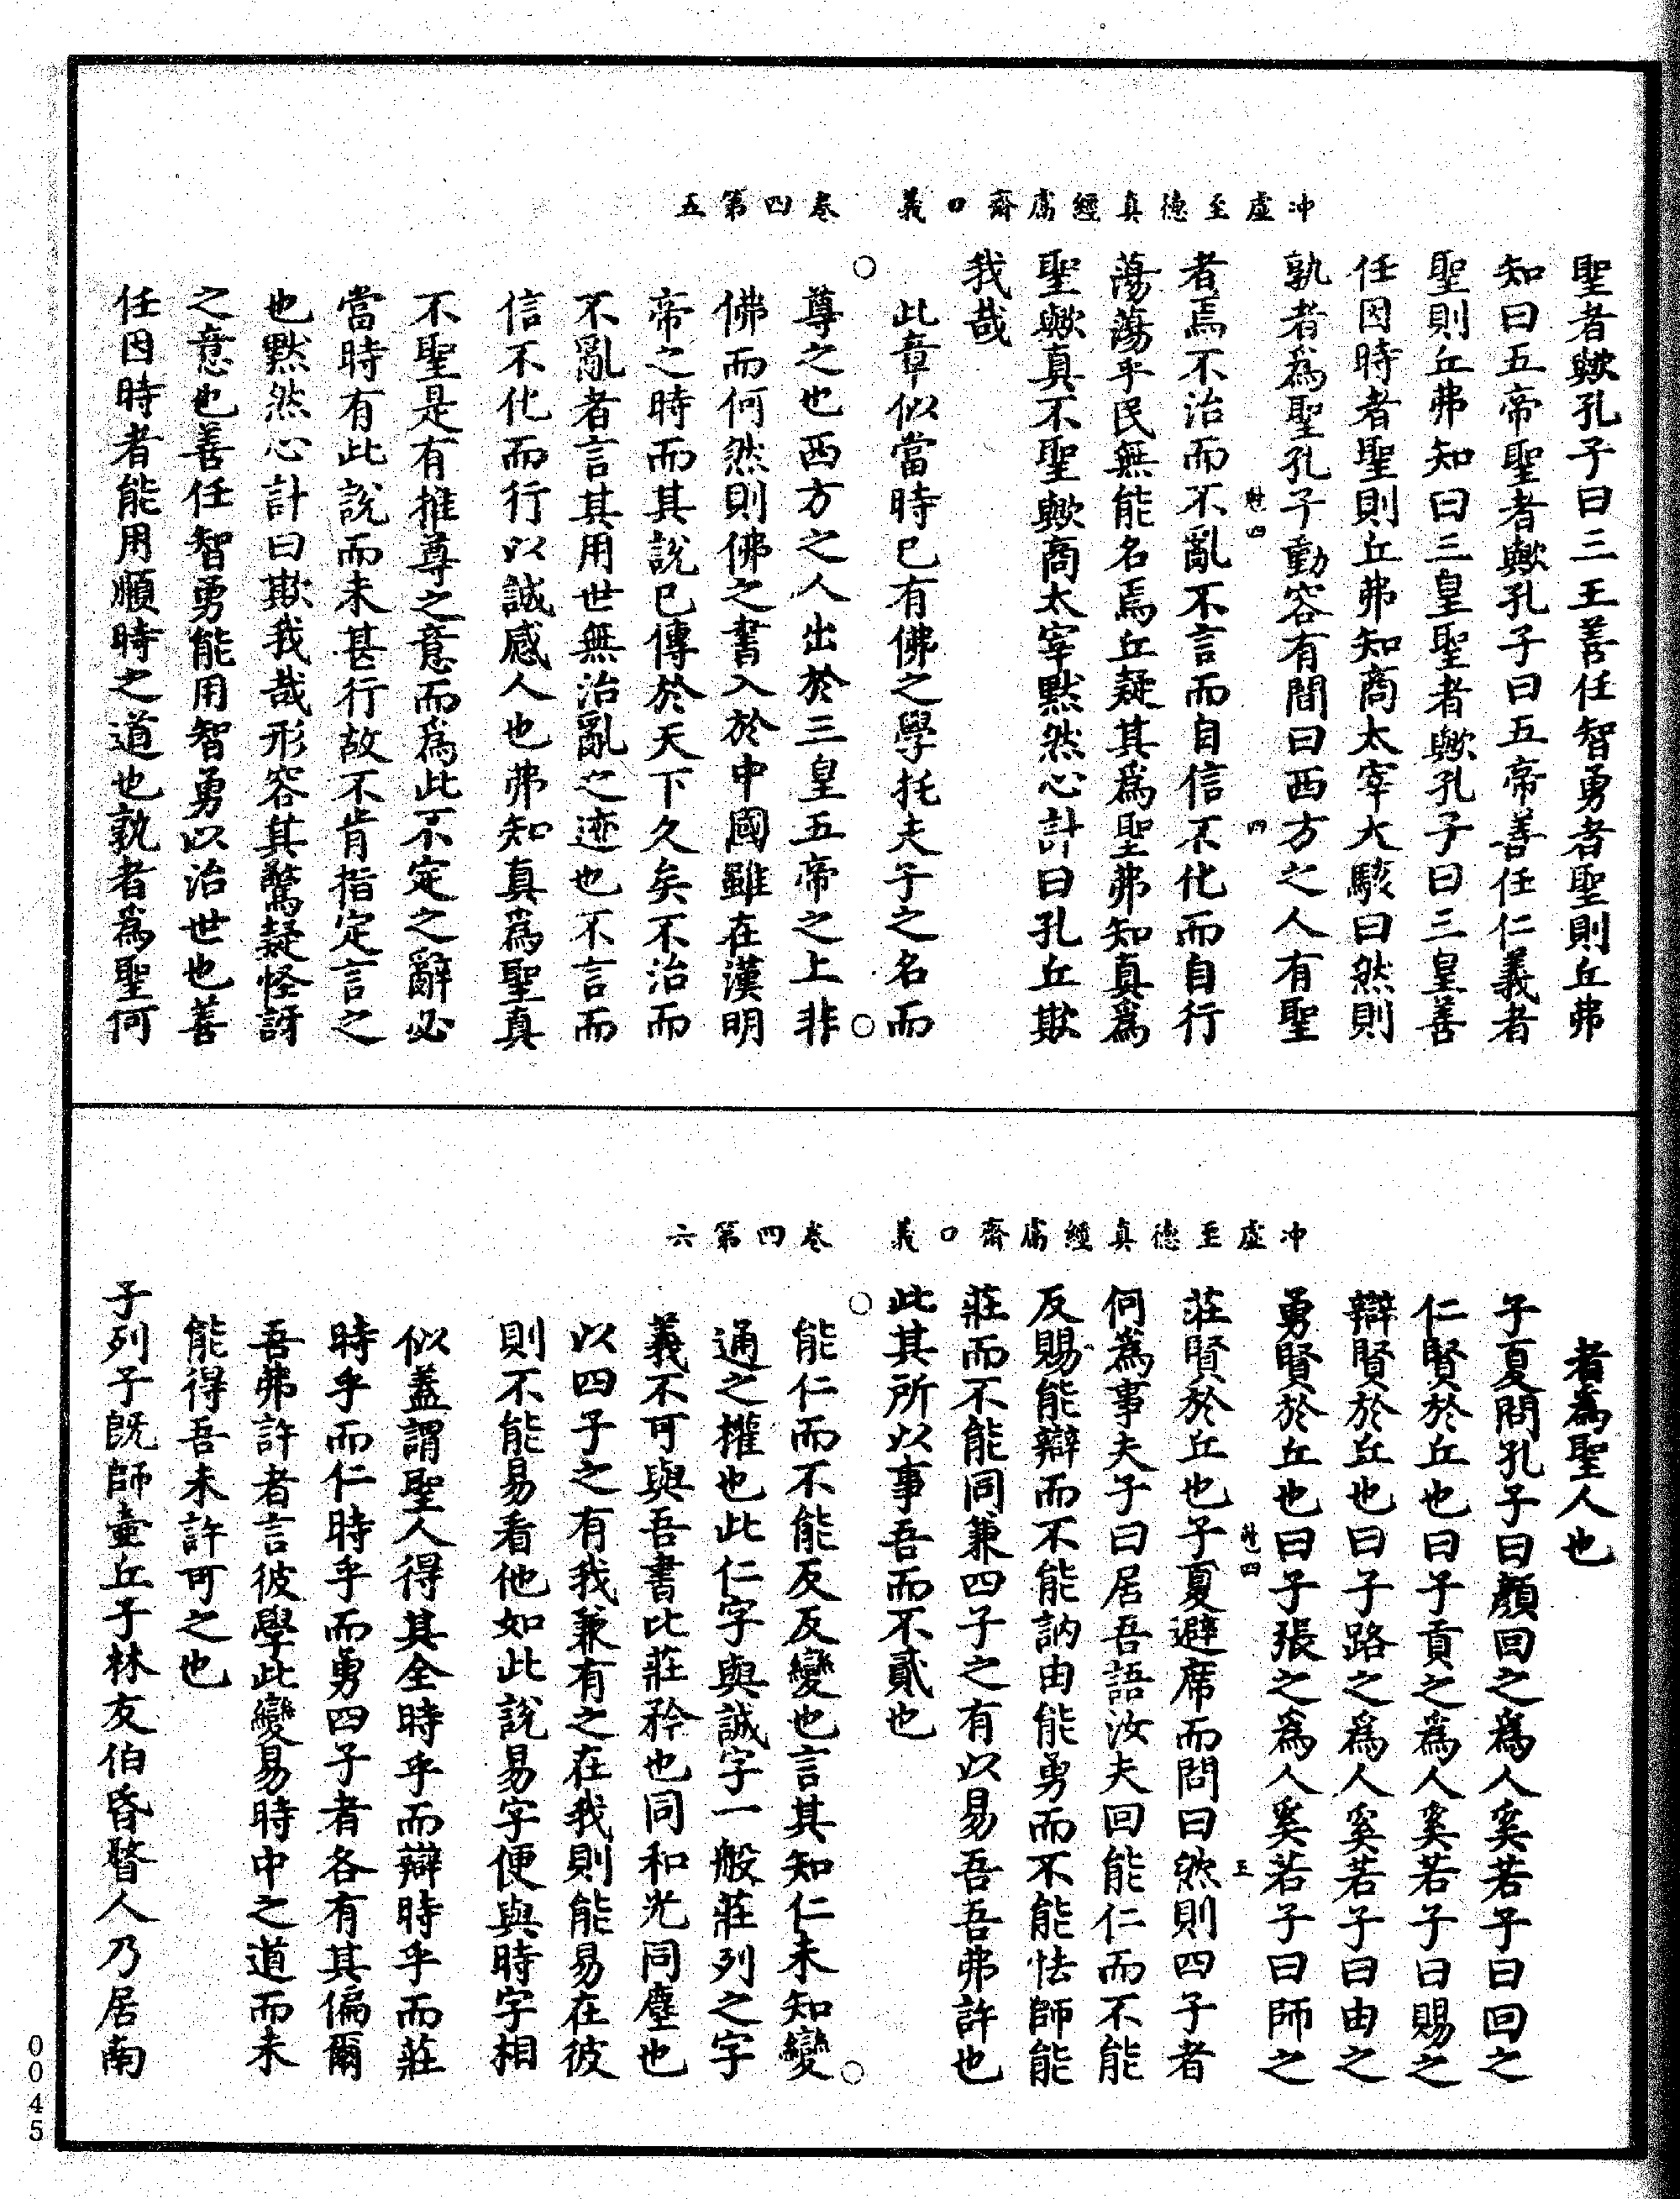 冲虛至德真經鬳齋口義　卷四第五
聖者歟孔子曰三王善任智勇者聖則丘弗
知曰五帝聖者歟孔子曰五帝善任仁義者
聖則丘弗知曰三皇聖者歟孔子曰三皇善
任因時者聖則丘弗知商太宰大駭曰然則
孰者爲聖孔子動容有間曰西方之人有聖
者焉不治而不亂不言而自信不化而自行
蕩蕩乎民無能名焉丘疑其爲聖弗知真爲
聖歟真不聖歟商太宰黙然心計曰孔丘欺
我哉
此章似當時已有佛之學托夫子之名而
尊之也西方之人出於三皇五帝之上非
佛而何然則佛之書入於中國雖在漢明
帝之時而其說已傳於天下久矣不治而
不亂者言其用世無治亂之迹也不言而
信不化而行以誠感人也弗知真爲聖真
不聖是有推尊之意而爲此不定之辭必
當時有此說而未甚行故不肯指定言之
也黙然心計曰欺我哉形容其驚疑怪訝
之意也善任智勇能用智勇以治世也善
任因時者能用順時之道也孰者爲聖何
冲虛至德真經鬳齋口義　卷四第六
者爲聖人也
子夏問孔子曰顏回之爲人奚若子曰回之
仁賢於丘也曰子貢之爲人奚若子曰賜之
辯賢於丘也曰子路之爲人奚若子曰由之
勇賢於丘也曰子張之爲人奚若子曰師之
莊賢於丘也子夏避席而問曰然則四子者
何爲事夫子曰居吾語汝夫回能仁而不能
反賜能辯而不能訥由能勇而不能怯師能
莊而不能同兼四子之有以易吾吾弗許也
此其所以事吾而不貳也
能仁而不能反反變也言其知仁未知變
通之權也此仁字與誠字一般莊列之字
義不可與吾書比莊矜也同和光同塵也
以四子之有我兼有之在我則能易在彼
則不能易看他如此說易字便與時字相
似蓋謂聖人得其全時乎而辯時乎而莊
時乎而仁時乎而勇四子者各有其偏爾
吾弗許者言彼學此變易時中之道而未
能得吾未許可之也
子列子旣師壷丘子林友伯昏瞀人乃居南
0045